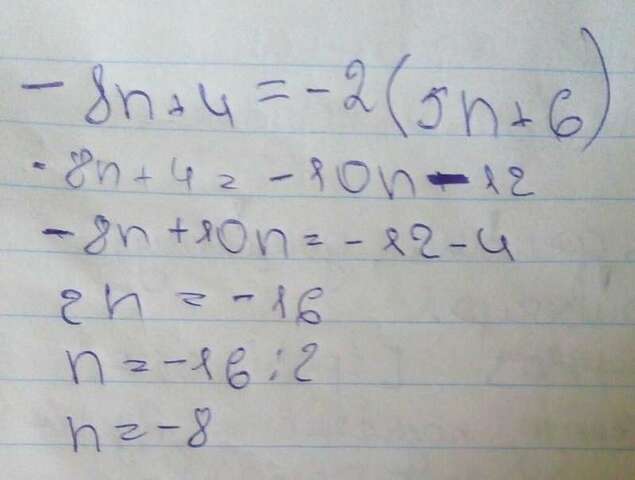 - 8n+4=-2(5n+6)
-8n+4=-10n-12
-8n+10n=-12-4
2n=-16
n=-16:2
n=-8